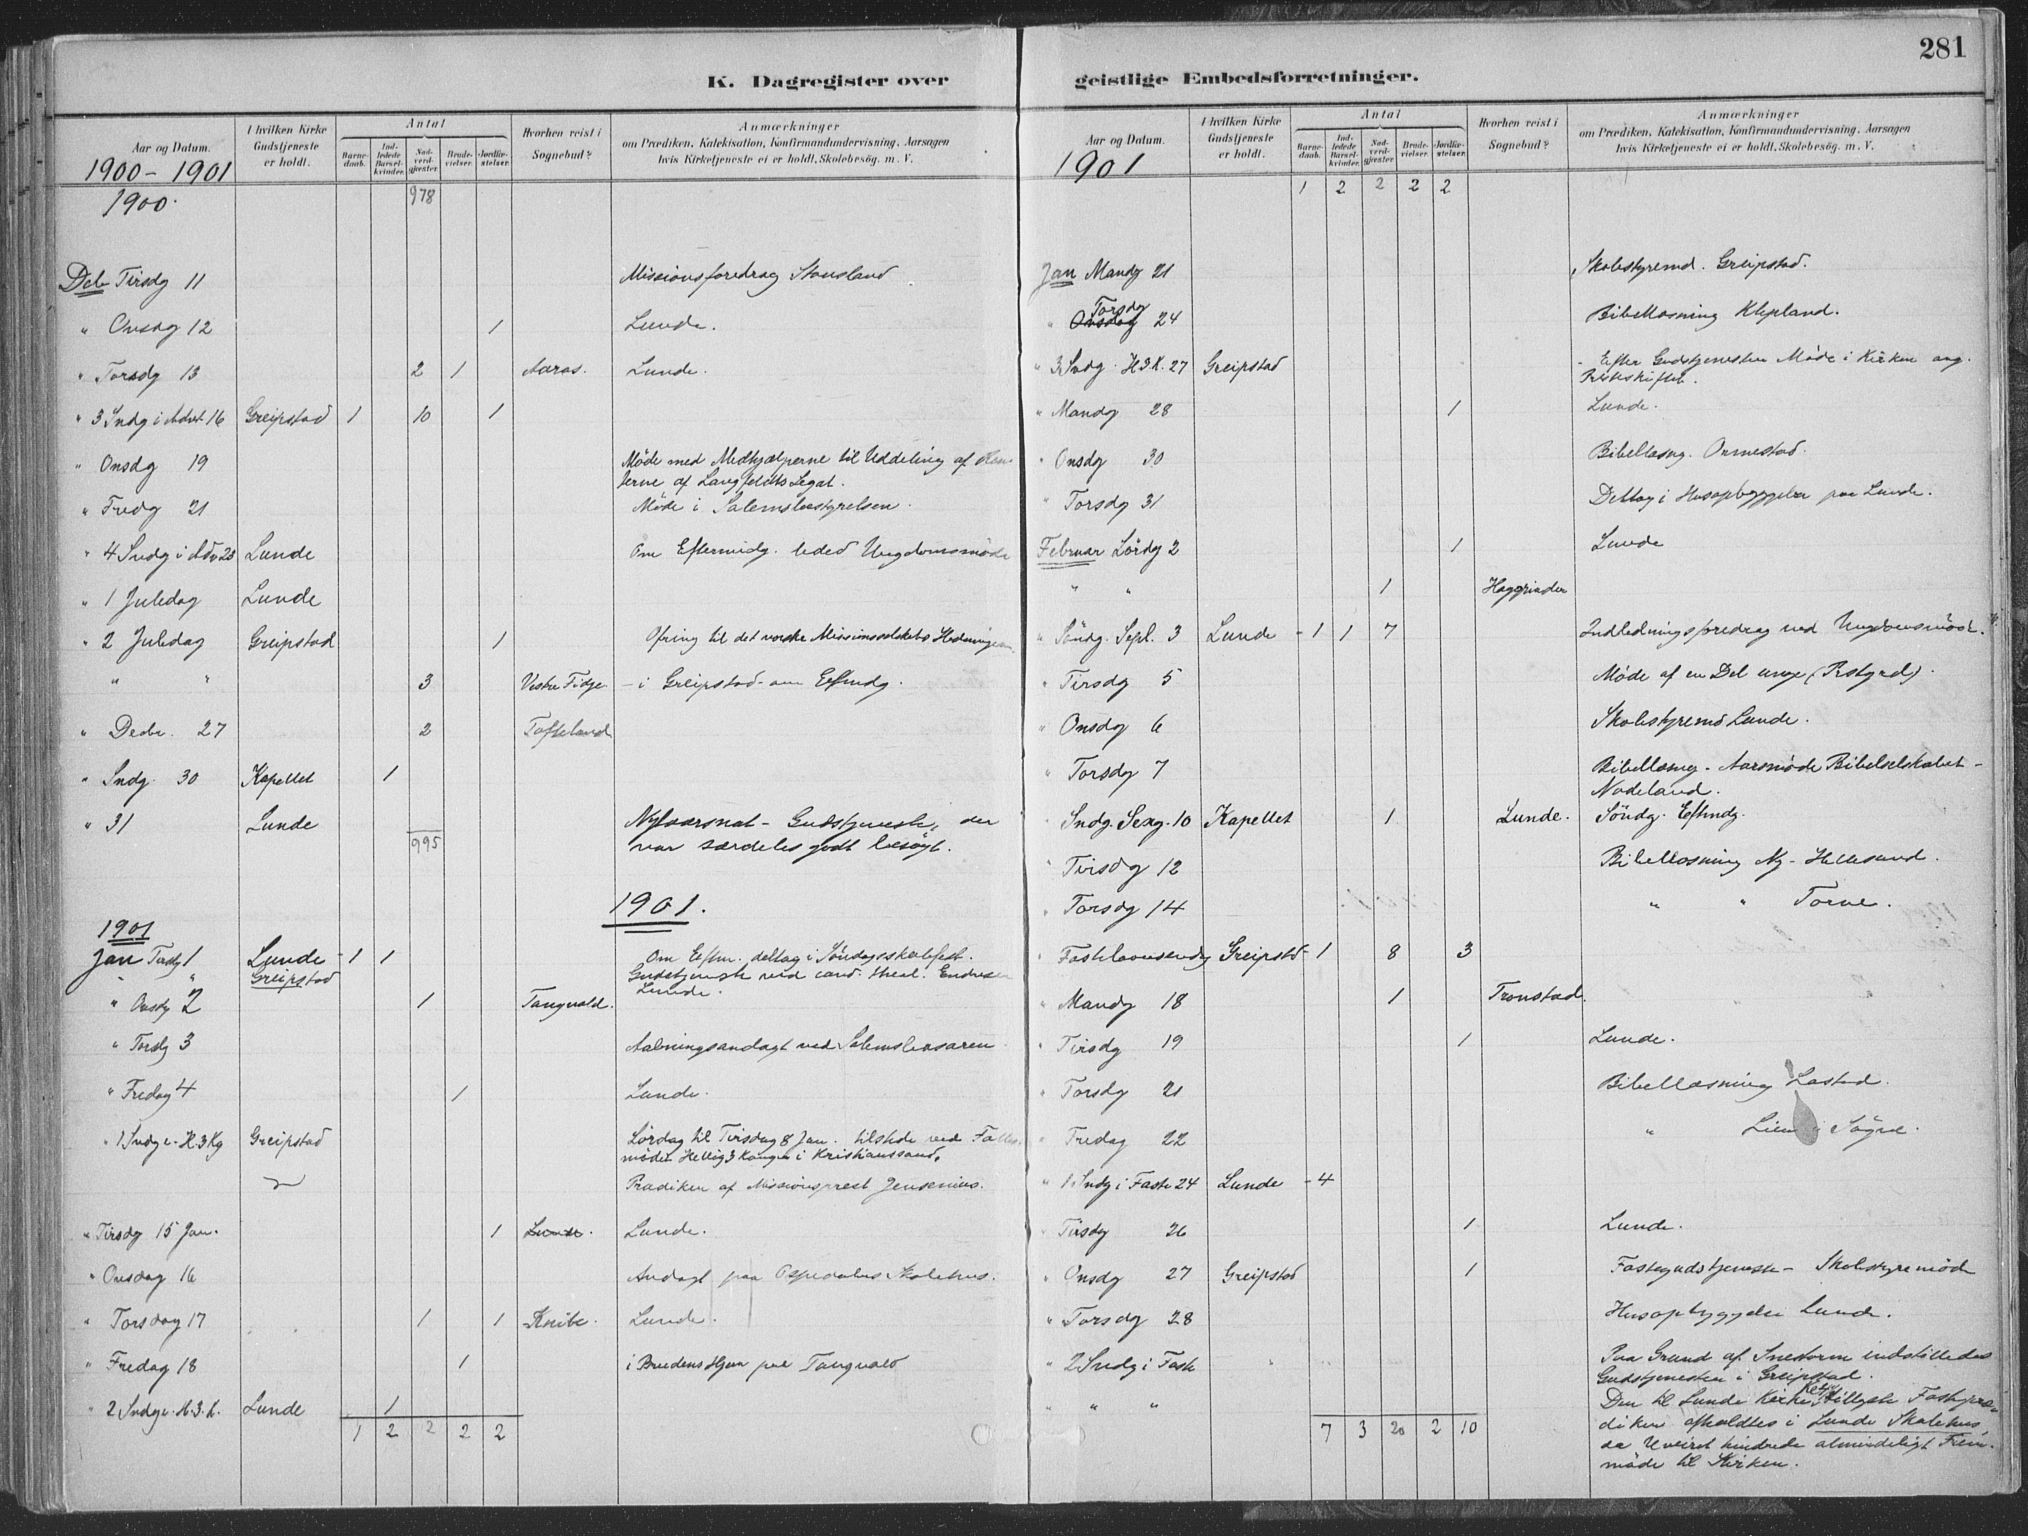 281
K. Dagregister over geistlige Embedsforretninger.
Aar og Datum. I hvilken Kirke Gudstjeneste er holdt. Antal Barnedaab. Indledede Barselkvinder. Nadverdgjester. Brudevielser. Jordfæstelser. Hvorhen reist i Sognebud? Anmærkninger om Prædiken, Katekisation, Konfirmandundervisning, Aarsagen hvis Kirketjeneste ei er holdt, Skolebesøg. m. V.
1900 - 1901
1900. 978
Deb Tirsdg 11 Missionsforedrag Stausland
" Onsdg 12 1 Lunde.
" Torsdg 13 2 1 Aaros. Lunde.
" 3 Sndg i Advt 16 Greipstad 1 10 1
" Onsdg 19 Møde med Medhjælperne til Uddeling af
terne af Langfeldts Legat.
" Fredg 21 Møde i Salemsbestyrelsen.
" 4 Sndg i Adv 23 Lunde Om Eftermidg. leded Ungdomsmøde
" 1 Juledag Lunde
" 2 Juledag Greipstad 1 Ofring til det norske Missionsselskabs
" " 3 Vestre Tidje - i Greipstad - om Eftmdg.
" Decbr. 27 2 Tofteland
" Sndg. 30 Kapellet 1
" 31 Lunde Nytaarsnat - Gudstjeneste, der
995 var særdeles godt besøgt.
1901.
1901
Jan Tirsdg 1 Lunde - 1 1 Om Eftm. deltag i Søndagsskolefest.
" " Greipstad Gudstjeneste ved cand. theol. Endresen
Lunde.
" Onsdg 2 1 Tangvald.
" Torsdg 3 Aabningsandagt ved Salemsbasaren.
" Fredag 4 1 Lunde.
" 1 Sndg e. H. 3 Kg Greipstad Lørdag til Tirsdag 8 Jan. tilstede ved
mødet Hellig 3 Konger i Kristianssand.
Prædiken af Missionsprest Jensenius.
" Tirsdg 15 Jan. 1 Lunde. Lunde.
" Onsdag 16 Andagt paa Ospedalens Skolehus.
" Torsdag 17 1 1 Knibe. Lunde.
" Fredag 18 1 i Brudens Hjem paa Tangvald
" 2 Sndg e. H. 3 K. Lunde 1
1 2 2 2 2
Aar og Datum. I hvilken Kirke Gudstjeneste er holdt. Antal Barnedaab. Indledede Barselkvinder. Nadverdgjester. Brudevielser. Jordfæstelser. Hvorhen reist i Sognebud? Anmærkninger om Prædiken, Katekisation, Konfirmandundervisning, Aarsagen hvis Kirketjeneste ei er holdt, Skolebesøg. m. V.
1901
1 2 2 2 2
Jan Mandg 21 Skolestyremd. Greipstad.
" Onsdag Torsdg 24 Bibellæsning Klepland.
" 3 Sndg. H 3 K. 27 Greipstad - Efter Gudstjenesten Møde i Kirken ang.
" Mandg 28 1 Lunde.
" Onsdg 30 Bibellæsng. Ormestad.
" Torsdg 31 Deltog i Husopbyggelse paa Lunde.
Februar Lördg 2 1 Lunde
" " 1
" Söndg. Sept. 3 Lunde - 1 1 7 Indledningsforedrag ved Ungdomsmöde.
" Tirsdg 5 Møde af en Del unge (Prstgrd).
" Onsdg 6 Skolestyremd Lunde.
" Torsdg 7 Bibellæsng - Aarsmøde Bibelselskabet -
Nodeland.
" Sndg. Sexg. 10 Kapellet 1 Lunde. Söndg. Eftmdg.
" Tirsdg 12 Bibellæsning Ny-Hellesund.
" Torsdg 14 " " Torve.
" Fastelavnsndg Greipstd - 1 8 3
" Mandg 18 1 Tronstad.
" Tirsdg 19 1 Lunde.
" Torsdg 21 Bibellæsning Lastad.
" Fredag 22 " Lien i Søgne.
" 1 Sndg i Faste 24 Lunde - 4
" Tirsdg 26 1 Lunde.
" Onsdg 27 Greipstad 1 Fastegudstjeneste - Skolestyremöde
" Torsdg 28 Husopbyggelse Lunde.
" 2 Sndg i Faste " Paa Grund af Snestorm indstilledes
Gudstjenesten i Greipstad.
" " " Den til Lunde Kirke tillyste Fastepræ-
diken afholdtes i Lunde Skolehus
da Uveiret hindrede almindeligt Frem-
møde til Kirken.
7 3 20 2 10